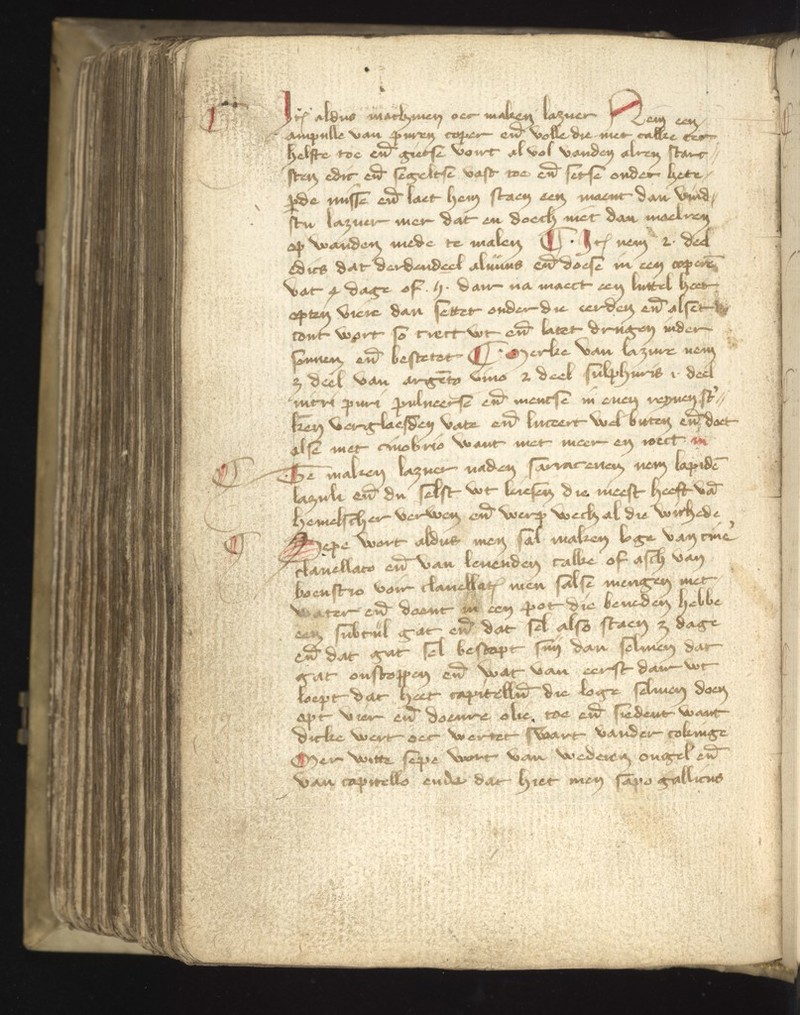 Itē aldus machmen oec maken lazuer Nem een
ampulle van puren coper eñ volle die met calke ter
helfte toe eñ gietse voirt al vol vanden alren starc
sten edic eñ segeltse vast toe eñ setse onder hete
perde misse eñ laet hem staen een maent dan vind
stu lazuer mer dat en doech niet dan maelren
op wanden mede te malen Itē nem 2 deel
edics dat derdendeel aluuns eñ doese in een coperē
vat 4 dage of 5 dair na maect een luttel heet
opten viere dan settet onder die eerden eñ alset
cout wort so trect wt eñ latet drugen inder
sonnen eñ besteret Merke van lazure nem
3 deel van argēto viuo 2 deel sulphuris 1 deel
nitri puri pulueerse eñ mencse in enen reynen st
ken verglaesden vate eñ luteert wel buten eñ doet
alse met cinobrio want met meer en roect
Te maken lazuer naden sarracenen nem lapidē
lazuli eñ du selst wt kiesen die meest heeft vā
hemelscher verwen eñ werp wech al die withede
Sepe wort aldus men sal maken loge van cine
clauellato eñ van leuenden calke of asch van
boenstro voir clauellatē men salse mengen met
water eñ doent in een pot die beneden hebbe
een subtiil gat eñ dat sel also staen 3 dage
eñ dat gat sel bestopt siin dan selmen dat
gat onstoppen eñ wat van eerst dair wt
loept dat heet capitellū die loge selmen doen
opt vier eñ doenre olie toe eñ siedent want
dicke wert oec wertet swart vander cokinge
Mer witte sepe wort van wederen ongel eñ
van capitello ende dat hiet men sapo gallicus